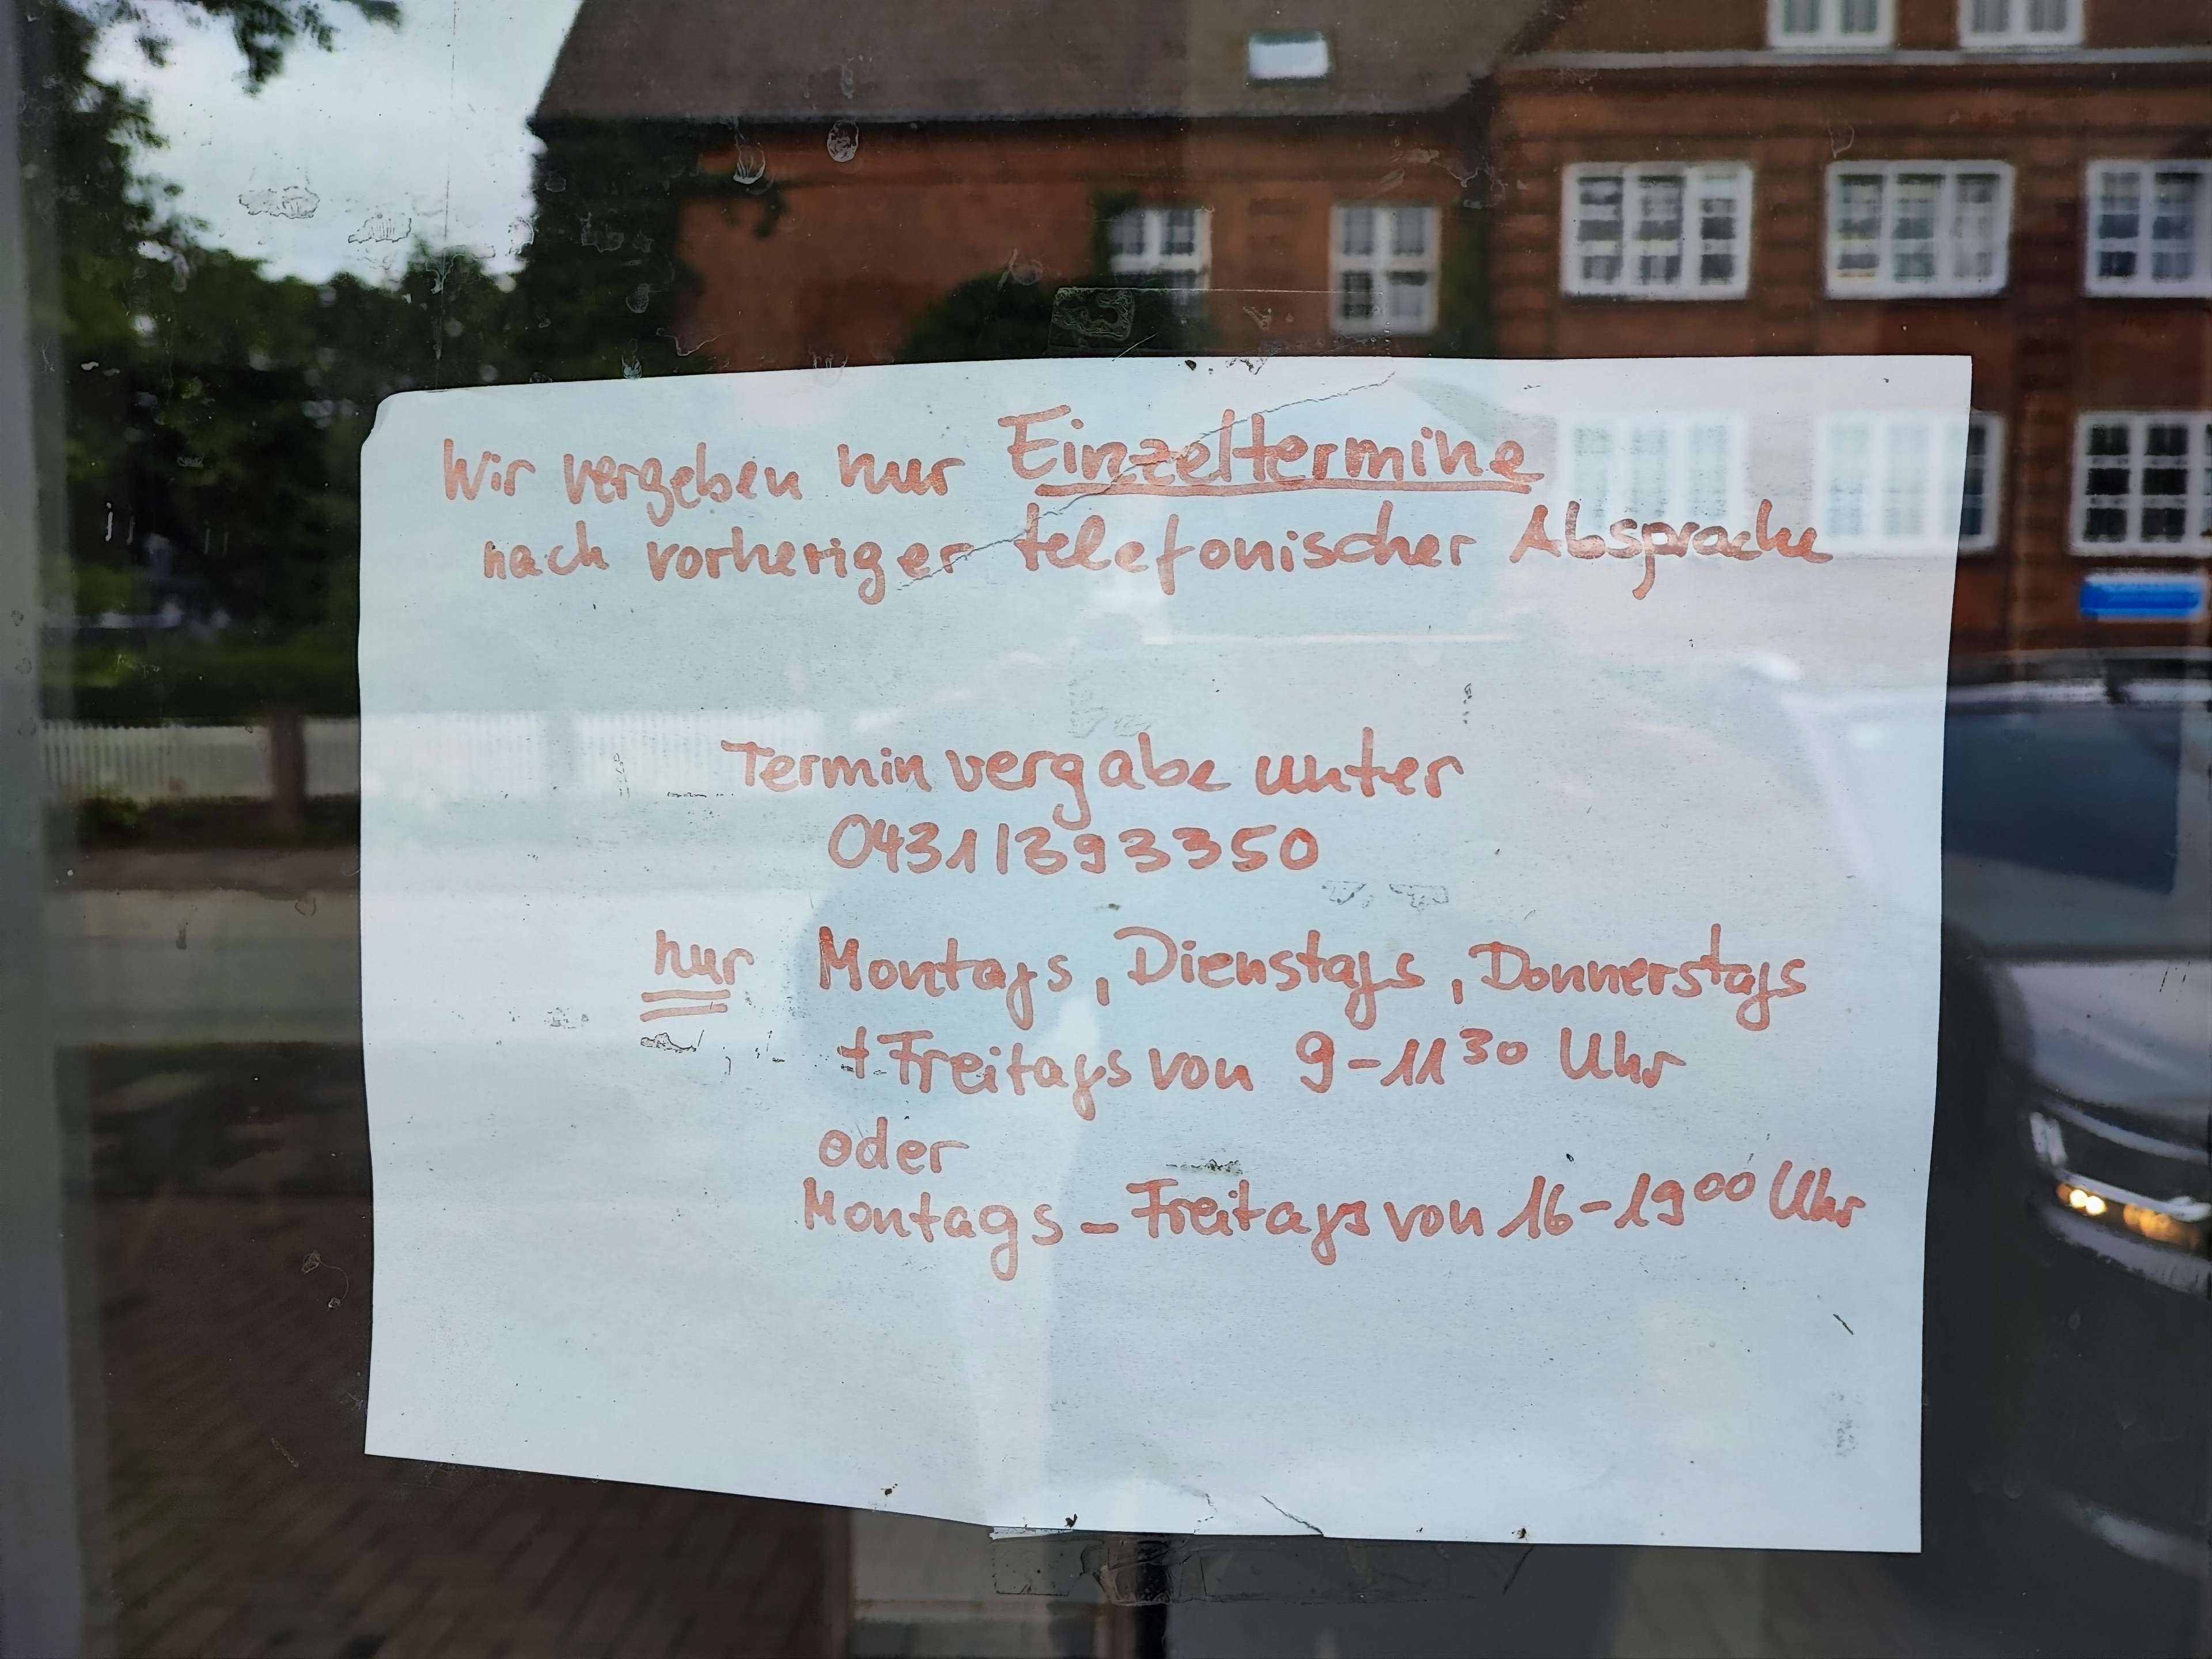 Wir vergeben nur Einzeltermine
nach vorheriger telefonischer Absprache
Terminvergabe unter
0431/393350
nur Montags, Dienstags, Donnerstags
+ Freitags von 9-11 30 Uhr
oder
Montags - Freitags von 16-19 00 Uhr